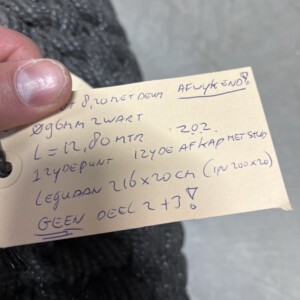 8,20 MET DEWA AFWYKEND!
Ø96MM ZWART
L = 12,80 MTR 202.
1 ZYDE PUNT 1 ZYDE AFKAP MET STUD
LEGUAAN 216 x 20 CM (IPV 200x20)
GEEN DEEL 2+3!